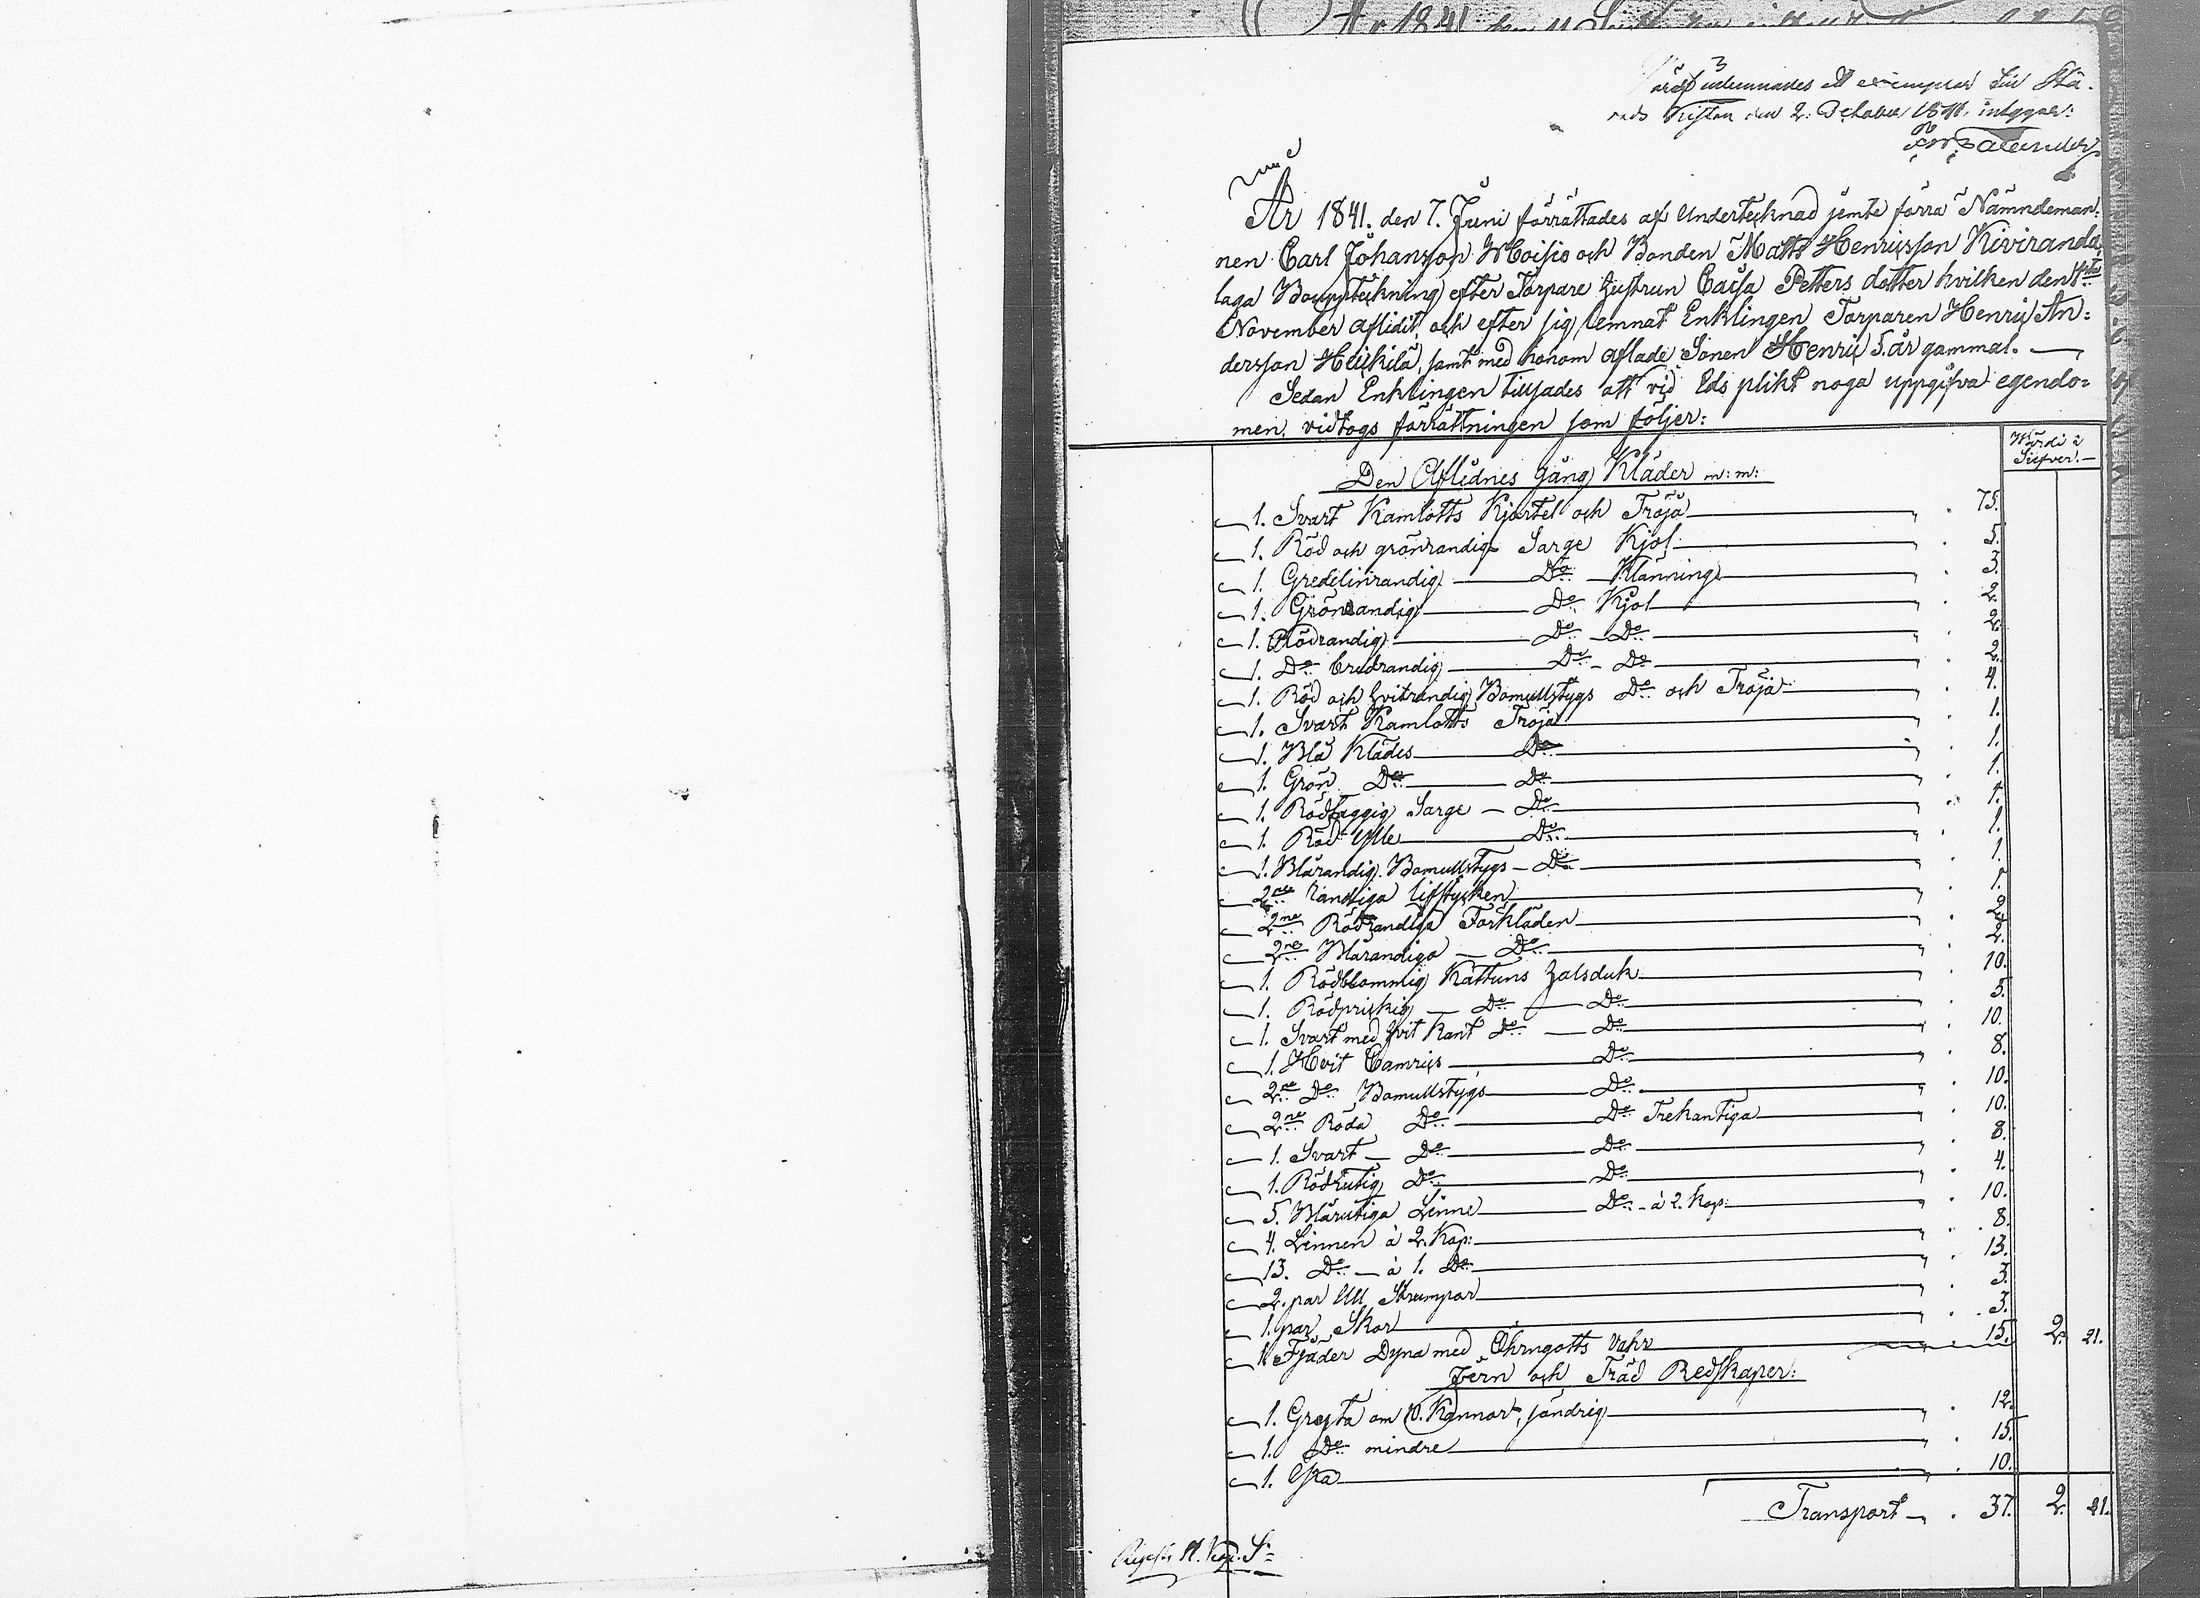 År 1841 den 11
3
utlemnades ett exemplar till Hä-
rads Kistan den 2. October 1841, intygar:
År 1841. den 7. Juni förrättades af Undertecknad jemte förra Nämndeman:
nen Carl Johansson Moisio och Bonden Matts Henricsson Kiviranda
laga Bouppteckning efter Torpare hustrun Caisa Petters dotter hvilken den
November aflidit, och efter sig lemnat Enklingen Torparen Henric An:
dersson Heickilä, samt med honom aflade Sonen Henric 5. år gammal. —
Sedan Enklingen tillsades att vid Eds plikt noga uppgifva egendo=
men, vidtogs förrättningen som följer:
Wärdi i
Silfver. —
Den Aflidnes Gång Kläder m: m:
1. Svart Kamlotts Kjortel och Tröja 75.
1. Röd och grönrandig Sarge Kjol 5.
1. Gredelinrandig Do Klänning 3.
1. Grönrandig Do Kjol 2.
1. Rödrandig Do Do 2.
1. Do bredrandig Do Do 2.
1. Röd och hvitrandig Bomullstygs Do och Tröja 4.
1. Svart Kamlotts Tröja 1.
1. Blå Klädes Do 1.
1. Grön Do Do 1.
1. Rödtaggig Sarge Do 1.
1. Röd Ylle Do 1.
1. Blårandig Bomullstygs Do 1.
2ne randiga lifstycken 1.
2ne Rödrandiga Förkläden 2.
2ne Blårandiga Do 2.
1. Rödblommig Kattuns halsduk 10.
1. Rödprickig Do Do 5.
1. Svart med hvit Kant Do Do 10.
1. Hvit Camrics Do 8.
2ne Do Bomullstygs Do 10.
2ne Röda Do Do Trekantiga 10.
1. Svart Do Do 8.
1. Rödrutig Do Do 4.
5. Blårutiga Linne Do à 2. Kop: 10.
4. Linnen à 2. Kop: 8.
13. Do à 1. Do 13.
2. par Ull Strumpor 3.
1. par Skor 3.
1. Fjäder Dyna med Öhrngotts Vahr 15. 2. 21.
Jern och Träd Redskaper:
1. Gryta om 10. Kannor, söndrig 12.
1. Do mindre 15.
1. Yxa 10.
Transport 37. 2. 21.